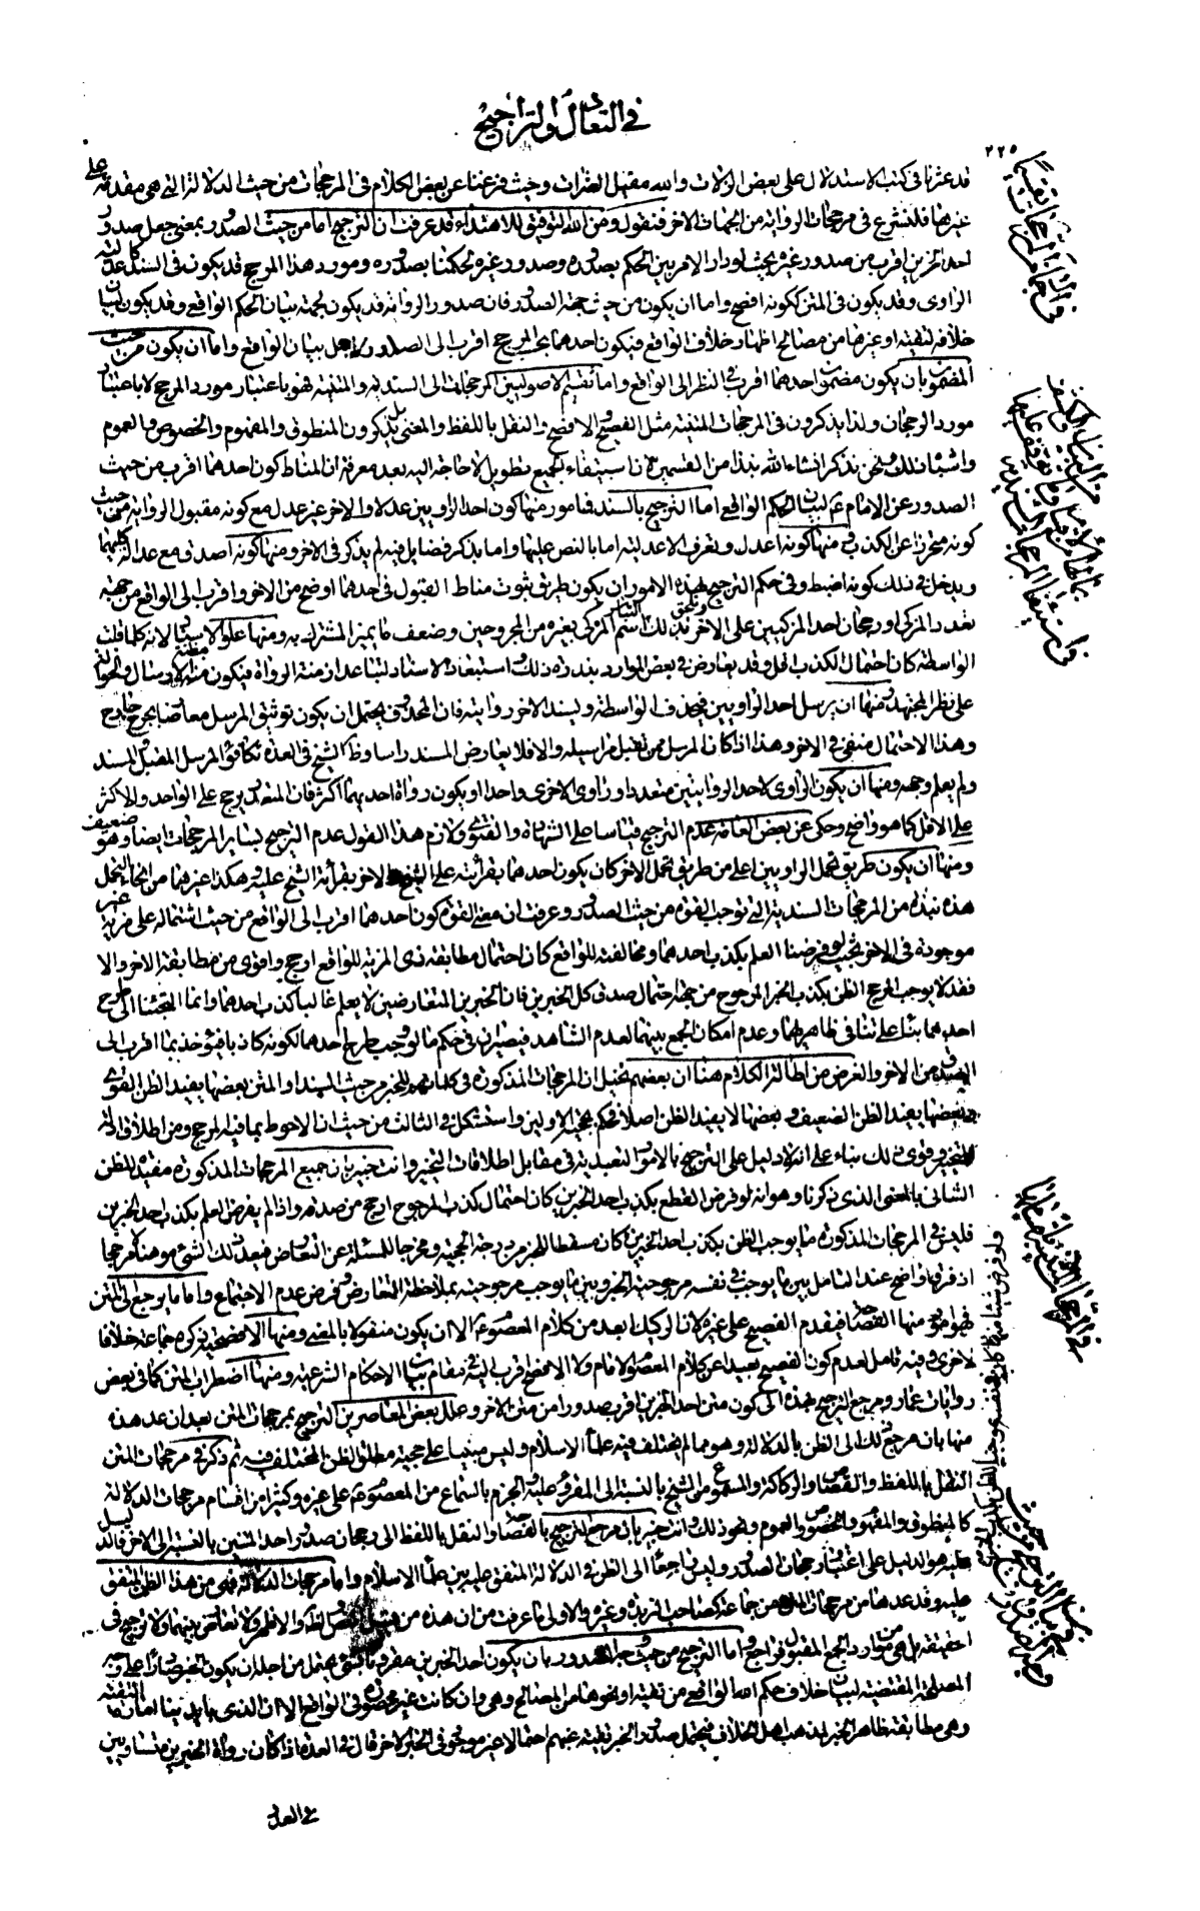 في التعادل والتراجيح
٢٢٥
قد عثرنا في كتب الاستدلال على بعض الزلات والله مقيل العثرات وحيث فرغنا عن بعض الكلام في المرجحات من حيث الدلالة التي هي مقدمة على
غيرها فلنشرع في مرجحات الرواية من الجهات الاخر فنقول ومن الله التوفيق للاهتداء قد عرفت ان الترجيح اما من حيث الصدور بمعنى جعل صدور
احد الخبرين اقرب من صدور غيره بحيث لو دار الامر بين الحكم بصدوره وصدور غيره لحكمنا بصدوره ومورد هذا المرجح قد يكون في السند كاعدلية
الراوي وقد يكون في المتن ككونه افصح واما ان يكون من حيث جهة الصدور فان صدور الرواية قد يكون لجهة بيان الحكم الواقعي وقد يكون لبيان
خلافه لتقية او غيرها من مصالح اظهار خلاف الواقع فيكون احدهما بحسب المرجح اقرب الى الصدور لاجل بيان الواقع واما ان يكون من حيث
المضمون بان يكون مضمون احدهما اقرب في النظر الى الواقع واما تقسيم الاصوليين المرجحات الى السندية والمتنية فهو باعتبار مورد المرجح لا باعتبار
مورد الرجحان ولذا يذكرون في المرجحات المتنية مثل الفصيح والافصح والنقل باللفظ والمعنى بل يذكرون المنطوق والمفهوم والخصوص والعموم
واشباه ذلك ونحن نذكر انشاء الله نبذا من القسمين لان استيفاء الجميع تطويل لا حاجة اليه بعد معرفة ان المناط كون احدهما اقرب من حيث
الصدور عن الامام ع لبيان الحكم الواقعي اما الترجيح بالسند فبامور منها كون احد الراويين عدلا والاخر غير عدل مع كونه مقبول الرواية من حيث
كونه متحرزا عن الكذب ومنها كونه اعدل وتعرف الاعدلية اما بالنص عليها واما بذكر فضايل فيه لم يذكر في الاخر ومنها كونه اصدق مع عدالة كليهما
ويدخل في ذلك كونه اضبط وفي حكم الترجيح بهذه الامور ان يكون طريق ثبوت مناط القبول في احدهما اوضح من الاخر واقرب الى الواقع من جهة
تعدد المزكي او رجحان احد المزكيين على الاخر ويلحق بذلك التباس اسم المزكى بغيره من المجروحين وضعف ما يميز المشترك به ومنها علو الاسناد لانه كلما قلت
الواسطة كان احتمال الكذب اقل وقد يعارض في بعض الموارد بندرة ذلك واستبعاد الاسناد لتباعد ازمنة الرواة فيكون مظنة الارسال والحوالة
على نظر المجتهد ومنها ان يرسل احد الراويين فيحذف الواسطة ويسند الاخر روايته فان المحذوف يحتمل ان يكون توثيق المرسل معارضا بجرح جارح
وهذا الاحتمال منفي في الاخر وهذا اذا كان المرسل ممن تقبل مراسيله والا فلا يعارض المسند راسا وظ الشيخ في العدة تكافؤ المرسل المقبول والمسند
ولم يعلم وجهه ومنها ان يكون الراوي لاحد الروايتين متعددا وراوي الاخرى واحدا او يكون رواة احديهما اكثر فان المتعدد يرجح على الواحد والاكثر
على الاقل كما هو واضح وحكي عن بعض العامة عدم الترجيح قياسا على الشهادة والفتوى ولازم هذا القول عدم الترجيح بساير المرجحات ايضا وهو ضعيف
ومنها ان يكون طريق تحمل احد الراويين اعلى من طريق تحمل الاخر كان يكون احدهما بقرائته على الشيخ والاخر بقرائة الشيخ عليه وهكذا غيرهما من انحاء التحمل
هذه نبذة من المرجحات السندية التي توجب القوة من حيث الصدور وعرفت ان معنى القوة كون احدهما اقرب الى الواقع من حيث اشتماله على مزية غير
موجودة في الاخر بحيث لو فرضنا العلم بكذب احدهما ومخالفته للواقع كان احتمال مطابقة ذي المزية للواقع ارجح واقوى من مطابقة الاخر والا
فقد لا يوجب المرجح الظن بكذب الخبر المرجوح من جهة احتمال صدق كلا الخبرين فان الخبرين المتعارضين لا يعلم غالبا كذب احدهما وانما التجئنا الى طرح
احدهما بناء على تنافي ظاهريهما وعدم امكان الجمع بينهما لعدم الشاهد فيصيران في حكم ما لو وجب طرح احدهما لكونه كاذبا فيؤخذ بما هو اقرب الى
الصدق من الاخر والغرض من اطالة الكلام هنا ان بعضهم تخيل ان المرجحات المذكورة في كلماتهم للخبر من حيث السند او المتن بعضها يفيد الظن القوي
وبعضها يفيد الظن الضعيف وبعضها لا يفيد الظن اصلا فحكم بحجية الاولين واستشكل في الثالث من حيث ان الاحوط الاخذ بما فيه المرجح ومن اطلاق ادلة
التخيير وقوى ذلك بناء على انه لا دليل على الترجيح بالامور التعبدية في مقابل اطلاقات التخيير وانت خبير بان جميع المرجحات المذكورة مفيدة للظن
الشاني بالمعنى الذي ذكرنا وهو انه لو فرض القطع بكذب احد الخبرين كان احتمال كذب المرجوح ارجح من صدقه واذا لم يفرض العلم بكذب احد الخبرين
فليس في المرجحات المذكورة ما يوجب الظن بكذب احد الخبرين
اذ فرق واضح عند التامل بين ما يوجب في نفسه مرجوحية الخبر وبين ما يوجب مرجوحيته بملاحظة التعارض وفرض عدم الاجتماع واما ما يرجع الى المتن
فهي امور منها الفصاحة فيقدم الفصيح على غيره لان الركيك ابعد من كلام المعصوم ع الا ان يكون منقولا بالمعنى ومنها الافصحية ذكره جماعة خلافا
لاخرى وفيه تامل لعدم كون الفصيح بعيدا عن كلام المعصوم ولا الافصح اقرب اليه في مقام بيان الاحكام الشرعية ومنها اضطراب المتن كما في بعض
روايات عمار ومرجع الترجيح بهذه الى كون متن احد الخبرين اقرب صدورا من متن الاخر وعلل بعض المعاصرين الترجيح بمرجحات المتن بعد ان عد هذه
منها بان مرجع ذلك الى الظن بالدلالة وهو مما لم يختلف فيه علماء الاسلام وليس مبنيا على حجية مطلق الظن المختلف فيه ثم ذكر في مرجحات المتن
النقل باللفظ والفصاحة والركاكة والمسموع من الشيخ بالنسبة الى المقروء عليه والجزم بالسماع من المعصوم ع على غيره وكثيرا من اقسام مرجحات الدلالة
كالمنطوق والمفهوم والخصوص والعموم ونحو ذلك وانت خبير بان مرجع الترجيح بالفصاحة والنقل باللفظ الى رجحان صدور احد المتنين بالنسبة الى الاخر فالدليل
عليه هو الدليل على اعتبار رجحان الصدور وليس راجعا الى الظن في الدلالة المتفق عليه بين علماء الاسلام واما مرجحات الدلالة فهي من هذا الظن المتفق
عليه وقد عدها من مرجحات المتن جماعة كصاحب الزبدة وغيره والاولى ما عرفت من ان هذه من قبيل النص والظاهر والاظهر والظاهر ولا تعارض بينهما ولا ترجيح في
الحقيقة بل هي من موارد الجمع المقبول فراجع واما الترجيح من حيث وجه الصدور بان يكون احد الخبرين مقرونا بشيء يحتمل من اجله ان يكون الخبر صادرا على وجه
المصلحة المقتضية لبيان خلاف حكم الله الواقعي من تقية او نحوها من المصالح وهي وان كانت غير محصورة في الواقع الا ان الذي بايدينا امارة التقية
وهي مطابقة ظاهر الخبر لمذهب اهل الخلاف فيحتمل صدور الخبر تقية عنهم احتمالا غير موجود في الخبر الاخر قال في العدة اذا كان رواة الخبرين متساويين
في العدد